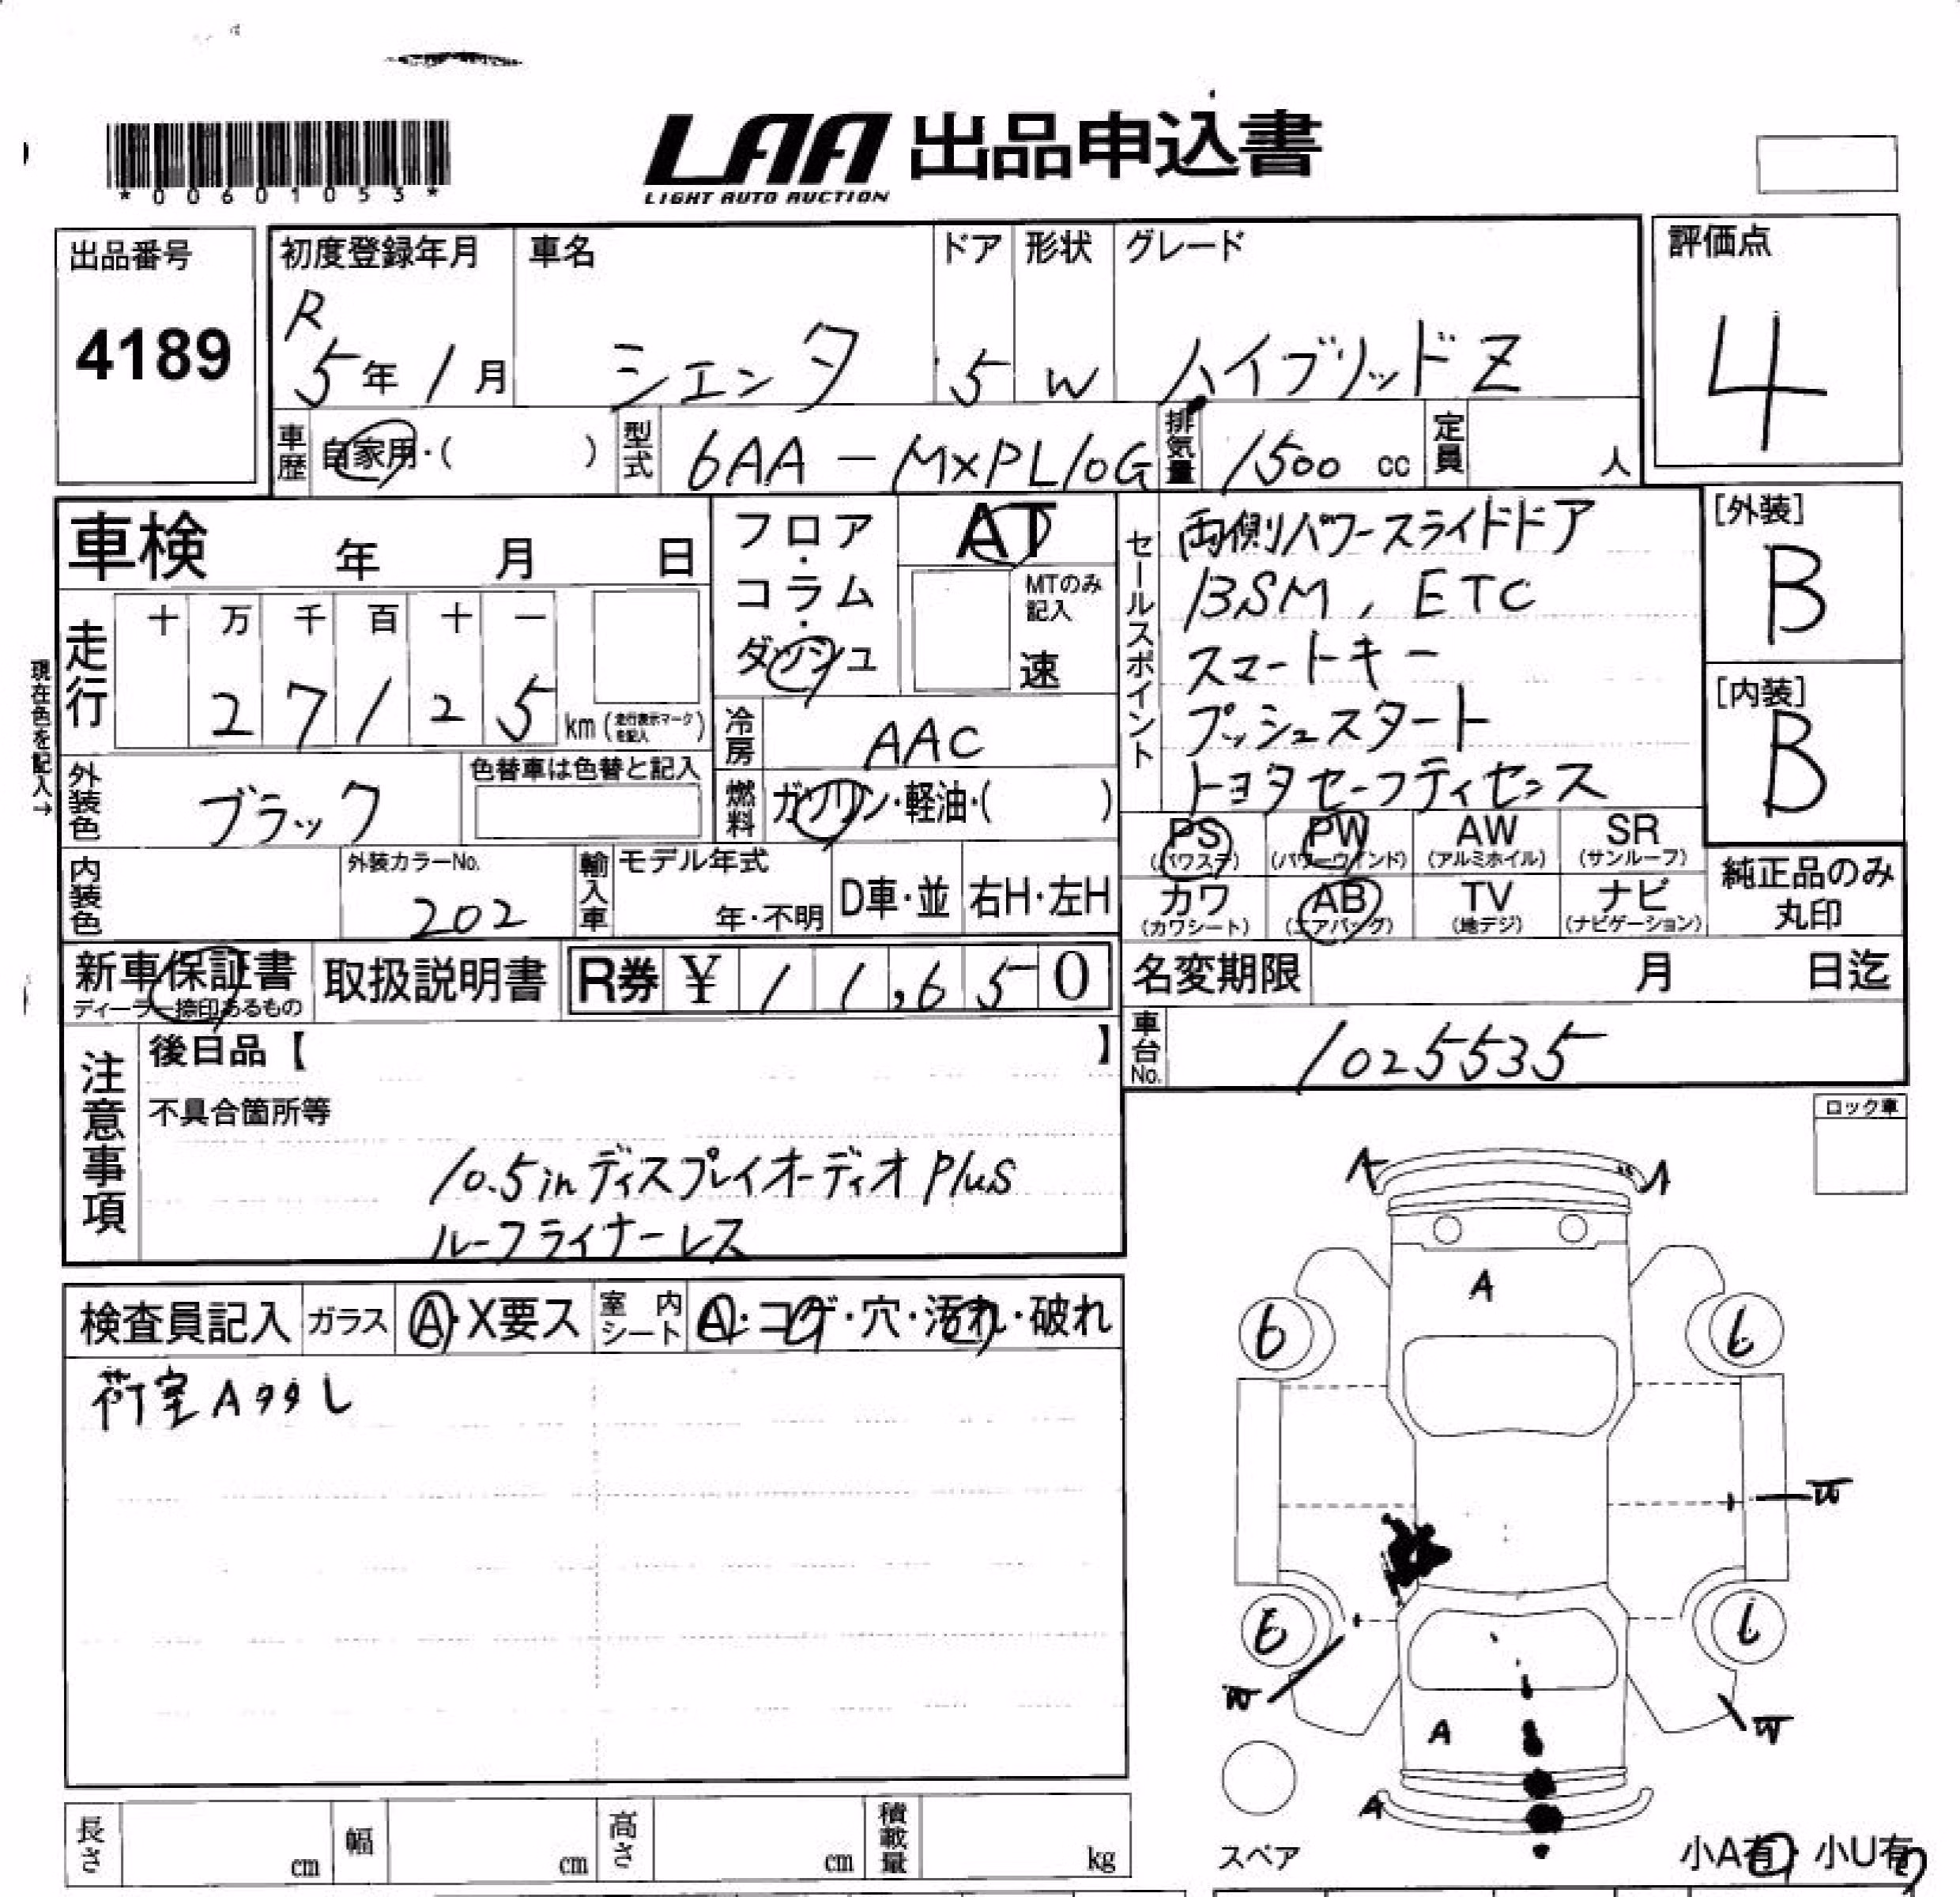 *00601053*
LAA 出品申込書
LIGHT AUTO AUCTION
出品番号
4189
初度登録年月
R
5年1月
車名
シエンタ
ドア
5
形状
W
グレード
ハイブリッドZ
評価点
4
車歴
自家用・( )
型式
6AA-MXPL10G
排気量
1500 cc
定員
人
車検 年 月 日
フロア・コラム・ダッシュ
AT
MTのみ記入
速
セールスポイント
両側パワースライドドア
BSM, ETC
スマートキー
プッシュスタート
トヨタセーフティセンス
[外装]
B
[内装]
B
現在色を記入→
走行
十 万 千 百 十 一
2 7 1 2 5 km (走行表示マークを記入)
冷房
AAC
外装色
ブラック
色替車は色替と記入
燃料
ガソリン・軽油・( )
PS (パワステ)
PW (パワーウインド)
AW (アルミホイル)
SR (サンルーフ)
カワ (カワシート)
AB (エアバッグ)
TV (地デジ)
ナビ (ナビゲーション)
純正品のみ
丸印
内装色
外装カラーNo.
202
輸入車
モデル年式
年・不明
D車・並
右H・左H
新車保証書
ディーラー捺印あるもの
取扱説明書
R券 ¥ 11,650
名変期限 月 日迄
車台No.
1025535
注意事項
後日品【 】
不具合箇所等
10.5inディスプレイオーディオPlus
ルーフライナーレス
ロック車
検査員記入
ガラス
A・X要ス
室内シート
A・コゲ・穴・汚れ・破れ
荷室A
A
A
6
6
W
6
6
W
W
A
A
スペア
小A有・小U有
長さ cm
幅 cm
高さ cm
積載量 kg